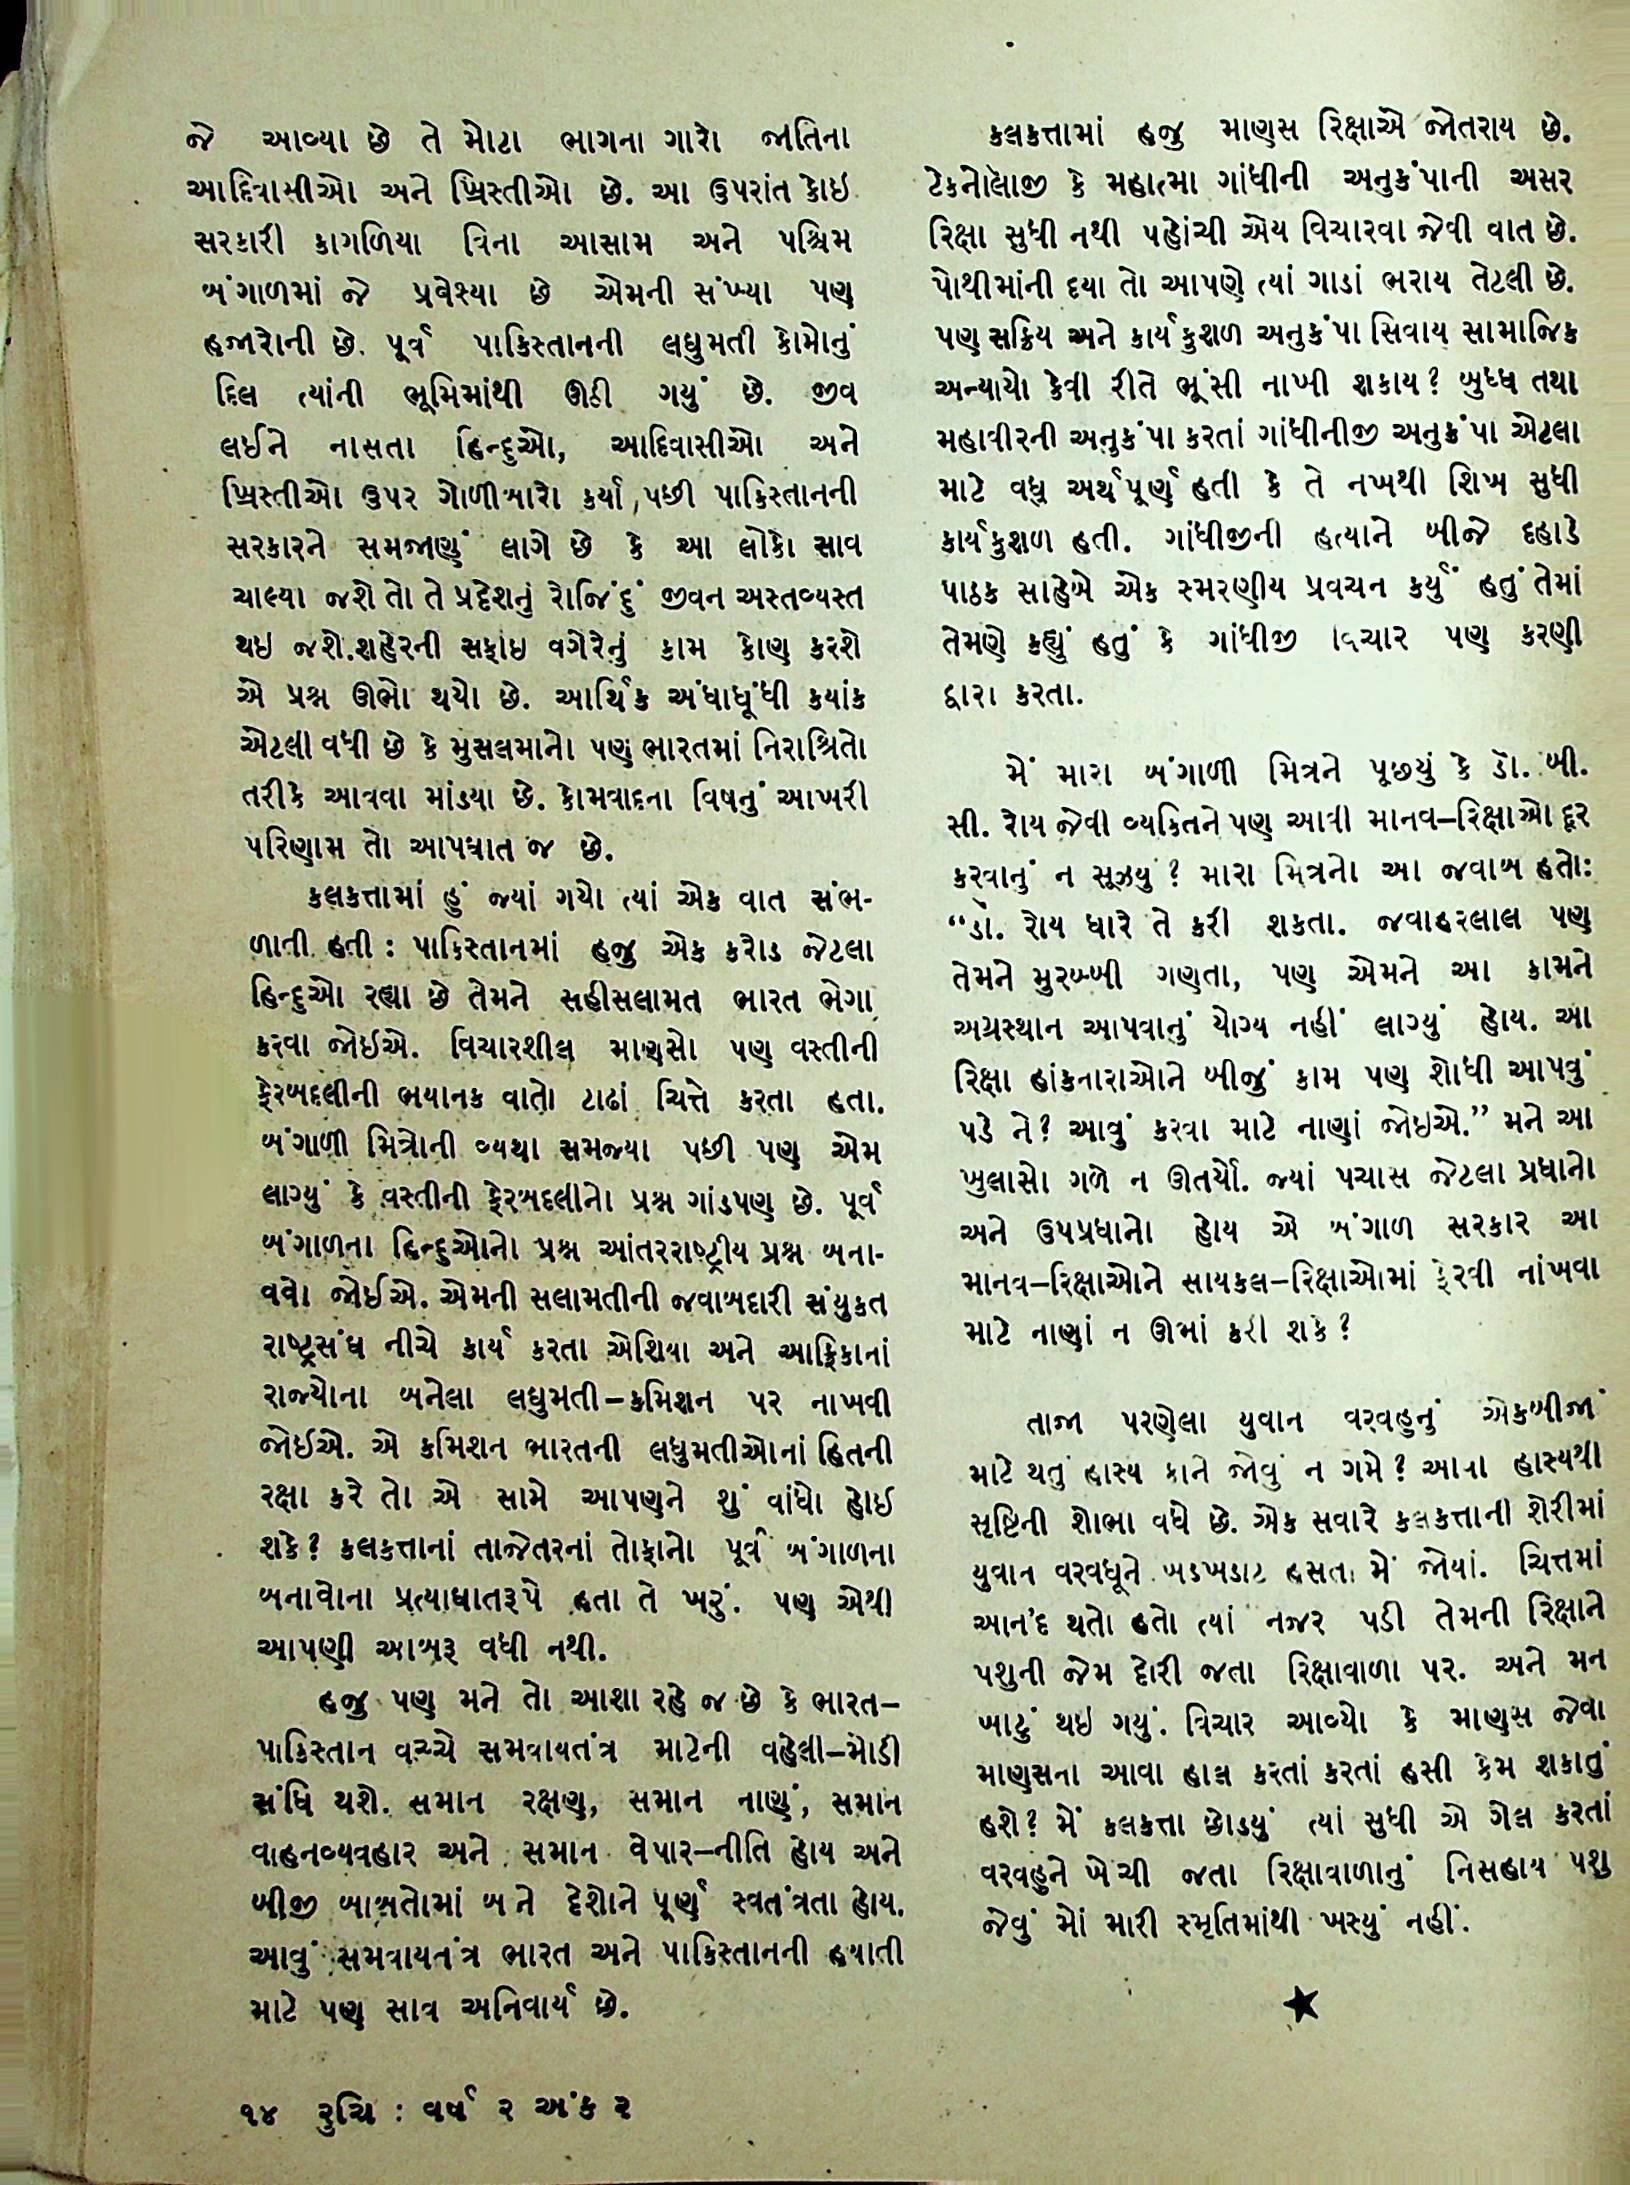 જે આવ્યા છે તે મોટા ભાગના ગારો જાતિના
આદિવાસીઓ અને ખ્રિસ્તીઓ છે. આ ઉપરાંત કોઇ
સરકારી કાગળિયા વિના આસામ અને પશ્ચિમ
બંગાળમાં જે પ્રવેશ્યા છે એમની સંખ્યા પણ
હજારોની છે. પૂર્વ પાકિસ્તાનની લઘુમતી કોમોનું
દિલ ત્યાંની ભૂમિમાંથી ઊઠી ગયું છે. જીવ
લઈને નાસતા હિન્દુઓ, આદિવાસીઓ અને
ખ્રિસ્તીઓ ઉપર ગોળીબારો કર્યા, પછી પાકિસ્તાનની
સરકારને સમજાણું લાગે છે કે આ લોકો સાવ
ચાલ્યા જશે તો તે પ્રદેશનું રોજિંદું જીવન અસ્તવ્યસ્ત
થઇ જશે.શહેરની સફાઇ વગેરેનું કામ કોણ કરશે
એ પ્રશ્ન ઊભો થયો છે. આર્થિક અંધાધૂંધી કયાંક
એટલી વધી છે કે મુસલમાનો પણ ભારતમાં નિરાશ્રિતો
તરીકે આવવા માંડયા છે. કોમવાદના વિષનું આખરી
પરિણામ તો આપઘાત જ છે.
કલકત્તામાં હું જ્યાં ગયો ત્યાં એક વાત સંભ-
ળાતી હતી : પાકિસ્તાનમાં હજુ એક કરોડ જેટલા
હિન્દુઓ રહ્યા છે તેમને સહીસલામત ભારત ભેગા
કરવા જોઈએ. વિચારશીલ માણસો પણ વસ્તીની
ફેરબદલીની ભયાનક વાતો ટાઢાં ચિત્તે કરતા હતા.
બંગાળી મિત્રોની વ્યથા સમજ્યા પછી પણ એમ
લાગ્યું કે વસ્તીની ફેરબદલીનો પ્રશ્ન ગાંડપણ છે. પૂર્વ
બંગાળના હિન્દુઓનો પ્રશ્ન આંતરરાષ્ટ્રીય પ્રશ્ન બના-
વવો જોઈએ. એમની સલામતીની જવાબદારી સંયુકત
રાષ્ટ્રસંઘ નીચે કાર્ય કરતા એશિયા અને આફ્રિકાનાં
રાજ્યોના બનેલા લઘુમતી–કમિશન પર નાખવી
જોઈએ. એ કમિશન ભારતની લઘુમતીઓનાં હિતની
રક્ષા કરે તો એ સામે આપણને શું વાંધો હોઈ
શકે? કલકત્તાનાં તાજેતરનાં તોફાનો પૂર્વ બંગાળના
બનાવોના પ્રત્યાઘાતરૂપે હતા તે ખરું. પણ એથી
આપણી આબરૂ વધી નથી.
હજુ પણ મને તો આશા રહે જ છે કે ભારત–
પાકિસ્તાન વચ્ચે સમવાયતંત્ર માટેની વહેલી–મોડી
સંધિ થશે. સમાન રક્ષણ, સમાન નાણું, સમાન
વાહનવ્યવહાર અને સમાન વેપાર–નીતિ હોય અને
બીજી બાબતોમાં બંને દેશોને પૂર્ણ સ્વતંત્રતા હોય.
આવું સમવાયતંત્ર ભારત અને પાકિસ્તાનની હયાતી
માટે પણ સાવ અનિવાર્ય છે.
કલકત્તામાં હજુ માણસ રિક્ષાએ જોતરાય છે.
ટેકનોલૉજી કે મહાત્મા ગાંધીની અનુકંપાની અસર
રિક્ષા સુધી નથી પહોંચી એય વિચારવા જેવી વાત છે.
પોથીમાંની દયા તો આપણે ત્યાં ગાડાં ભરાય તેટલી છે.
પણ સક્રિય અને કાર્યકુશળ અનુકંપા સિવાય સામાજિક
અન્યાયો કેવી રીતે ભૂંસી નાખી શકાય? બુધ્ધ તથા
મહાવીરની અનુકંપા કરતાં ગાંધીનીજી અનુકંપા એટલા
માટે વધુ અર્થપૂર્ણ હતી કે તે નખથી શિખ સુધી
કાર્યકુશળ હતી. ગાંધીજીની હત્યાને બીજે દહાડે
પાઠક સાહેબે એક સ્મરણીય પ્રવચન કર્યું હતું તેમાં
તેમણે કહ્યું હતું કે ગાંધીજી વિચાર પણ કરણી
દ્વારા કરતા.
મેં મારા બંગાળી મિત્રને પૂછયું કે ડૉ. બી.
સી. રોય જેવી વ્યકિતને પણ આવી માનવ–રિક્ષાઓ દૂર
કરવાનું ન સૂઝયું? મારા મિત્રનો આ જવાબ હતો:
“ડૉ. રોય ધારે તે કરી શકતા. જવાહરલાલ પણ
તેમને મુરબ્બી ગણતા, પણ એમને આ કામને
અગ્રસ્થાન આપવાનું યોગ્ય નહીં લાગ્યું હોય. આ
રિક્ષા હાંકનારાઓને બીજું કામ પણ શોધી આપવું
પડે ને? આવું કરવા માટે નાણાં જોઇએ.” મને આ
ખુલાસો ગળે ન ઊતર્યો. જ્યાં પચાસ જેટલા પ્રધાનો
અને ઉપપ્રધાનો હોય એ બંગાળ સરકાર આ
માનવ–રિક્ષાઓને સાયકલ–રિક્ષાઓમાં ફેરવી નાંખવા
માટે નાણાં ન ઊભાં કરી શકે?
તાજા પરણેલા યુવાન વરવહુનું એકબીજાં
માટે થતું હાસ્ય કોને જોવું ન ગમે? આવા હાસ્યથી
સૃષ્ટિની શોભા વધે છે. એક સવારે કલકત્તાની શેરીમાં
યુવાન વરવધૂને ખડખડાટ હસતા મેં જોયાં. ચિત્તમાં
આનંદ થતો હતો ત્યાં નજર પડી તેમની રિક્ષાને
પશુની જેમ દોરી જતા રિક્ષાવાળા પર. અને મન
ખાટું થઇ ગયું. વિચાર આવ્યો કે માણસ જેવા
માણસના આવા હાલ કરતાં કરતાં હસી કેમ શકાતું
હશે? મેં કલકત્તા છોડયું ત્યાં સુધી એ ગેલ કરતાં
વરવહુને ખેંચી જતા રિક્ષાવાળાનું નિસહાય પશુ
જેવું મોં મારી સ્મૃતિમાંથી ખસ્યું નહીં.
૧૪ રુચિ : વર્ષ ૨ અંક ૨